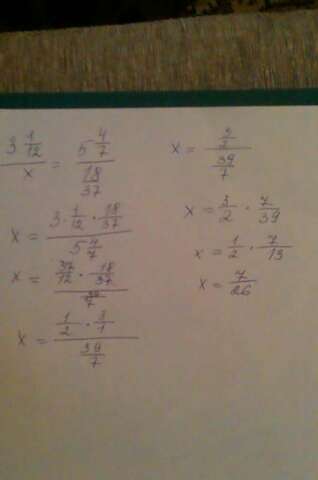 3 1/12 / x = 5 4/7 / 18/37
x = 3·1/12 · 18/37 / 5 4/7
x = 37/12 · 18/37 / 39/7
x = 1/2 · 3/1 / 39/7
x = 3/2 / 39/7
x = 3/2 · 7/39
x = 1/2 · 7/13
x = 7/26